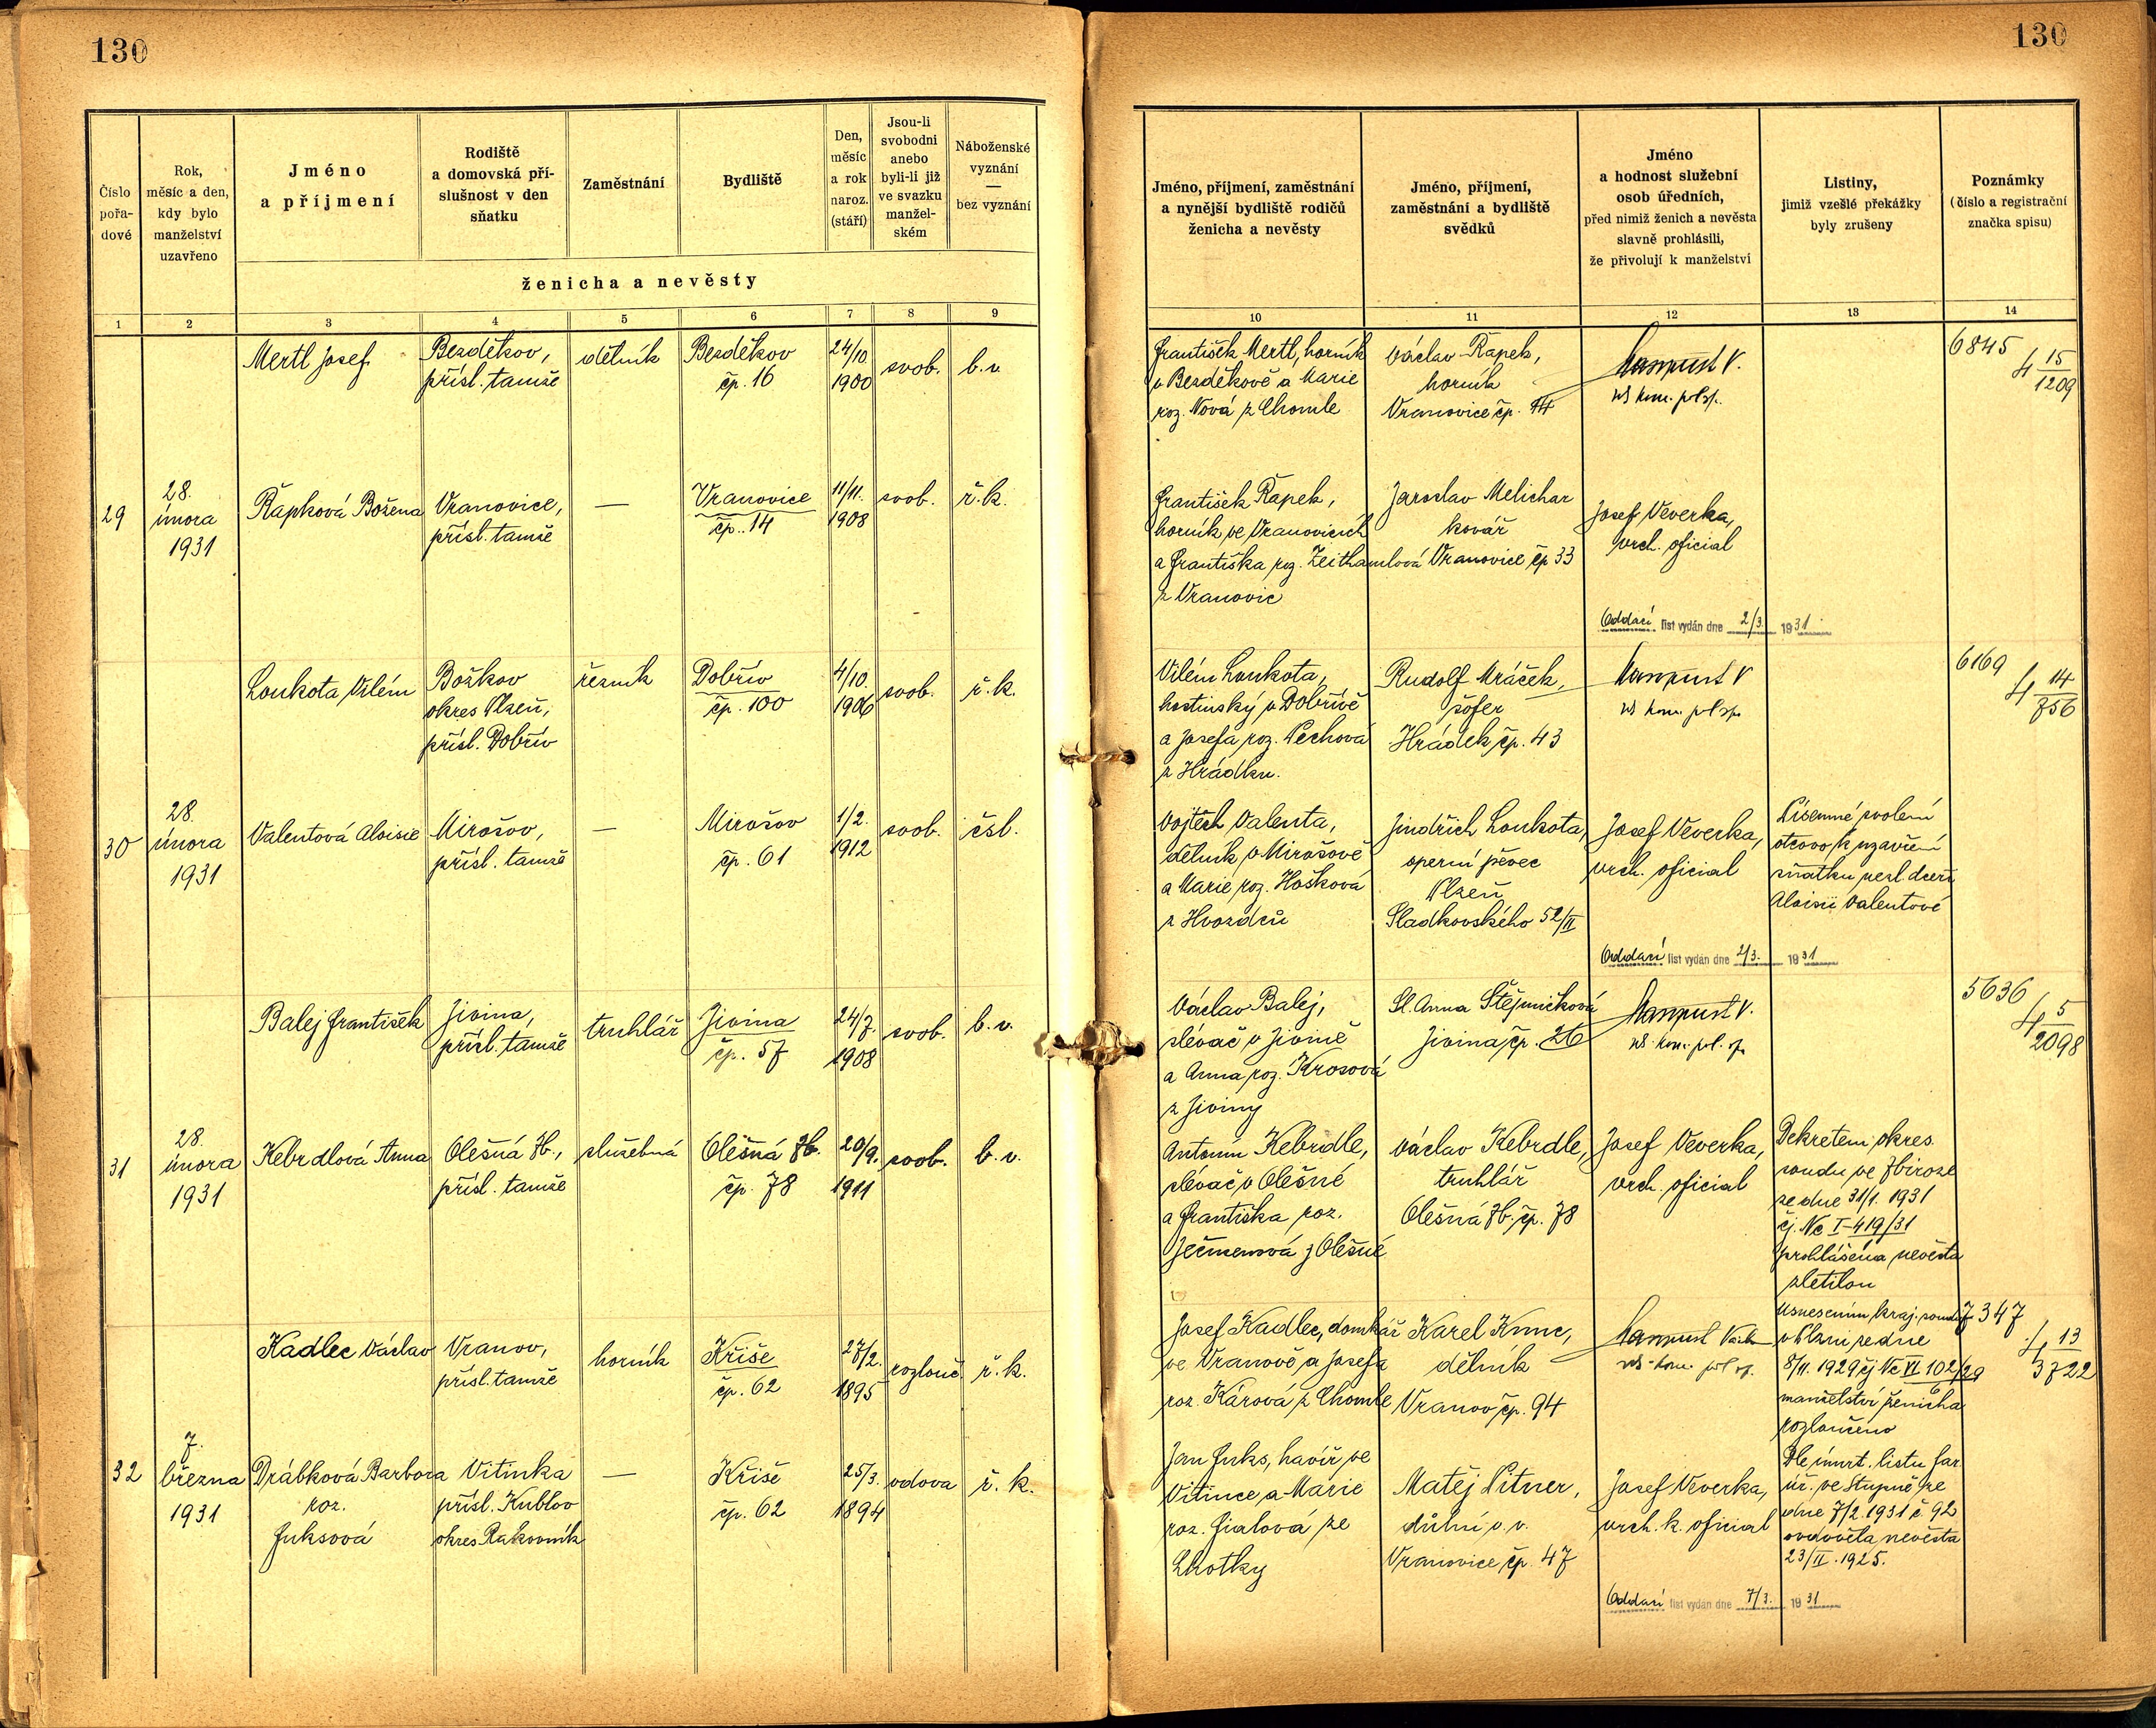 130
130
Číslo pořa- dové
Rok, měsíc a den, kdy bylo manželství uzavřeno
Jméno a příjmení
Rodiště a domovská pří- slušnost v den sňatku
Zaměstnání
Bydliště
Den, měsíc a rok naroz. (stáří)
Jsou-li svobodni anebo byli-li již ve svazku manžel- ském
Náboženské vyznání — bez vyznání
ženicha a nevěsty
Jméno, příjmení, zaměstnání a nynější bydliště rodičů ženicha a nevěsty
Jméno, příjmení, zaměstnání a bydliště svědků
Jméno a hodnost služební osob úředních, před nimiž ženich a nevěsta slavně prohlásili, že přivolují k manželství
Listiny, jimiž vzešlé překážky byly zrušeny
Poznámky (číslo a registrační značka spisu)
1 2 3 4 5 6 7 8 9 10 11 12 13 14
Mertl Josef
Bezděkov,
přísl. tamže
dělník
Bezděkov
čp. 16
24/10
1900
svob.
b.v.
František Mertl, horník
v Bezděkově a Marie
roz. Nová z Chomle
Václav Řapek,
horník
Vranovice čp. 44
6845
15
1209
29
28.
února
1931
Řapková Božena
Vranovice,
přísl. tamže
—
Vranovice
čp. 14
11/11.
1908
svob.
ř.k.
František Řapek,
horník ve Vranovicích
a Františka roz. Zeithamlová
z Vranovic
Jaroslav Melichar
kovář
Vranovice čp 33
Josef Veverka,
vrch. oficial
Oddací list vydán dne 2/3. 1931.
Loukota Vilém
Božkov
okres Plzeň,
přísl. Dobřív
řezník
Dobřív
čp. 100
4/10.
1906
svob.
ř.k.
Vilém Loukota,
hostinský v Dobřívě
a Josefa roz. Pechová
z Hrádku.
Rudolf Mráček,
šofer
Hrádek čp. 43
6169
14
756
30
28.
února
1931
Valentová Aloisie
Mirošov,
přísl. tamže
—
Mirošov
čp. 61
1/2.
1912
svob.
čsl.
Vojtěch Valenta,
dělník v Mirošově
a Marie roz. Hošková
z Hvozdců
Jindřich Loukota,
operní pěvec
Plzeň
Sladkovského 52/II
Josef Veverka,
vrch. oficial
Písemné svolení
otcovo k uzavření
sňatku nezl. dceři
Aloisii Valentové
Oddací list vydán dne 2/3. 1931
Balej František
Jivina,
přísl. tamže
truhlář
Jivina
čp. 57
24/7.
1908
svob.
b.v.
Václav Balej,
slévač v Jivině
a Anna roz. Krosová
z Jiviny
Sl. Anna Štějničková
Jivina čp. 26
5636
5
2098
31
28.
února
1931
Kebrdlová Anna
Olešná Zb.,
přísl. tamže
služebná
Olešná Zb.
čp. 78
20/9.
1911
svob.
b.v.
Antonín Kebrdle,
slévač v Olešné
a Františka roz.
Ječmenová z Olešné
Václav Kebrdle,
truhlář
Olešná Zb. čp. 78
Josef Veverka,
vrch. oficial
Dekretem okres.
soudu ve Zbiroze
ze dne 31/1. 1931
čj. Nc I-419/31
prohlášena nevěsta
zletilou
Kadlec Václav
Vranov,
přísl. tamže
horník
Kříše
čp. 62
27/2.
1895
rozlouč.
ř.k.
Josef Kadlec, domkář
ve Vranově a Josefa
roz. Kárová z Chomle
Karel Kunc,
dělník
Vranov čp. 94
Usnesením kraj. soudu
v Plzni ze dne
8/11. 1929 čj Nc VI 102/29
manželství ženicha
rozloučeno
7347
13
3722
32
7.
března
1931
Drábková Barbora
roz.
Fuksová
Vitinka
přísl. Kublov
okres Rakovník
—
Kříše
čp. 62
25/3.
1894
vdova
ř.k.
Jan Fuks, havíř ve
Vitince a Marie
roz. Fialová ze
Lhotky
Matěj Pitner,
důlní v.v.
Vranovice čp. 47
Josef Veverka,
vrch. k. oficial
Dle úmrt. listu far.
úř. ve Stupně ze
dne 7/2. 1931 č. 92
ovdověla nevěsta
23/II. 1925.
Oddací list vydán dne 7/3. 1931